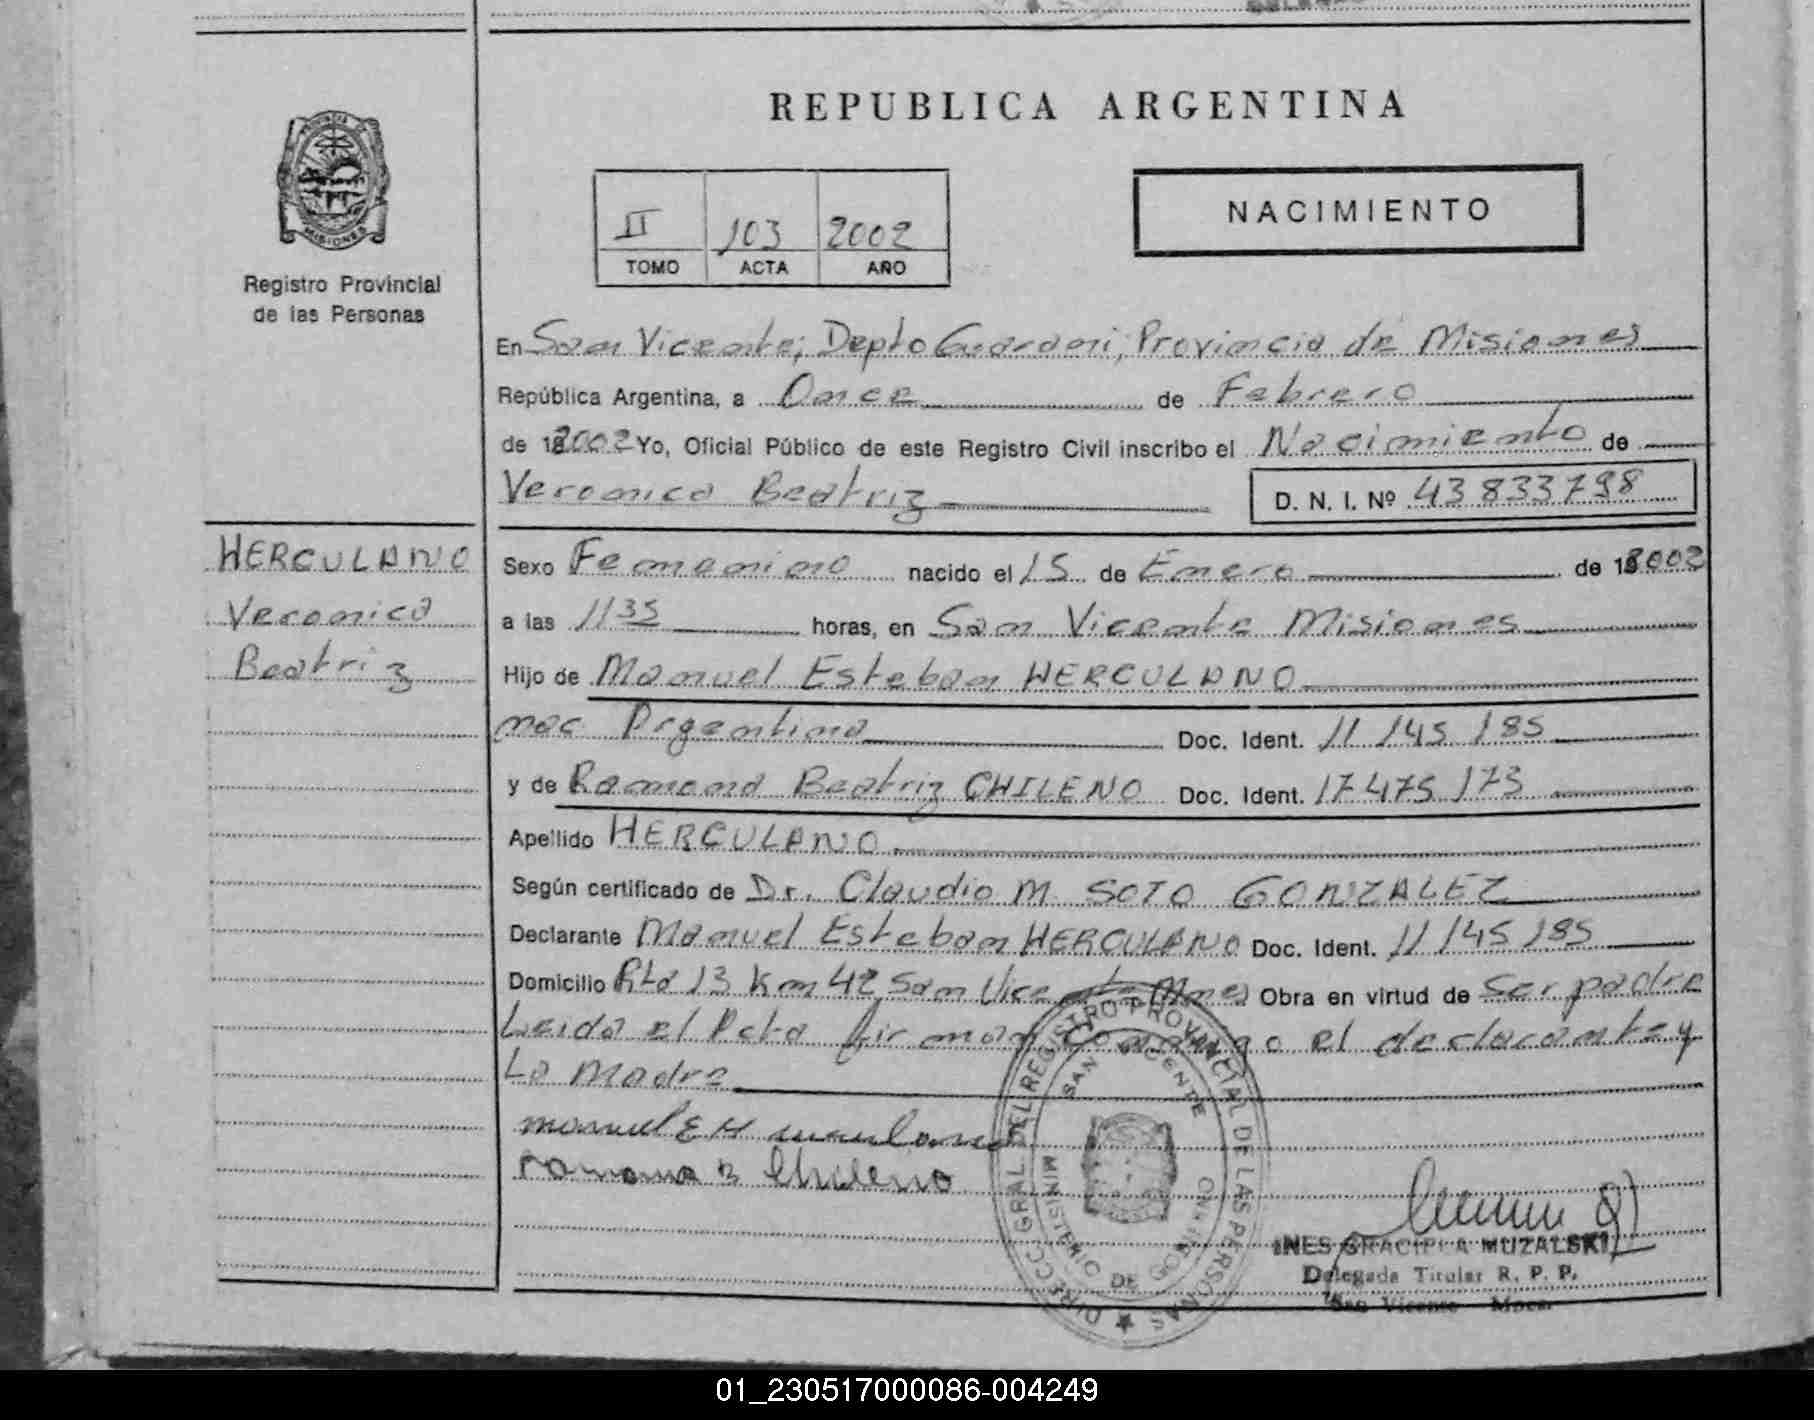 REPUBLICA ARGENTINA
PROVINCIA DE
MISIONES
Registro Provincial
de las Personas
II 103 2002
TOMO ACTA AÑO
NACIMIENTO
En San Vicente, Depto Guarani, Provincia de Misiones
República Argentina, a Once de Febrero
de 2002 Yo, Oficial Público de este Registro Civil inscribo el Nacimiento de
Veronica Beatriz D. N. I. Nº 43833798
HERCULANO
Veronica
Beatriz
Sexo Femenino nacido el 15 de Enero de 2002
a las 11 35 horas, en San Vicente Misiones
Hijo de Manuel Esteban HERCULANO
nac. Argentina Doc. Ident. 11 145 185
y de Ramona Beatriz CHILENO Doc. Ident. 17 475 173
Apellido HERCULANO
Según certificado de Dr. Claudio M. SOTO GONZALEZ
Declarante Manuel Esteban HERCULANO Doc. Ident. 11 145 185
Domicilio Rta 13 Km 42 San Vicente Mnes Obra en virtud de ser padre
Leida el Acta firman conmigo el declarante y
La Madre
manuel E H
ramona B Chileno
DIRECC. GRAL. DEL REGISTRO PROVINCIAL DE LAS PERSONAS
SAN VICENTE
MINISTERIO DE GOBIERNO
INES GRACIELA MUZALSKI
Delegada Titular R. P. P.
San Vicente Mnes.
01_230517000086-004249